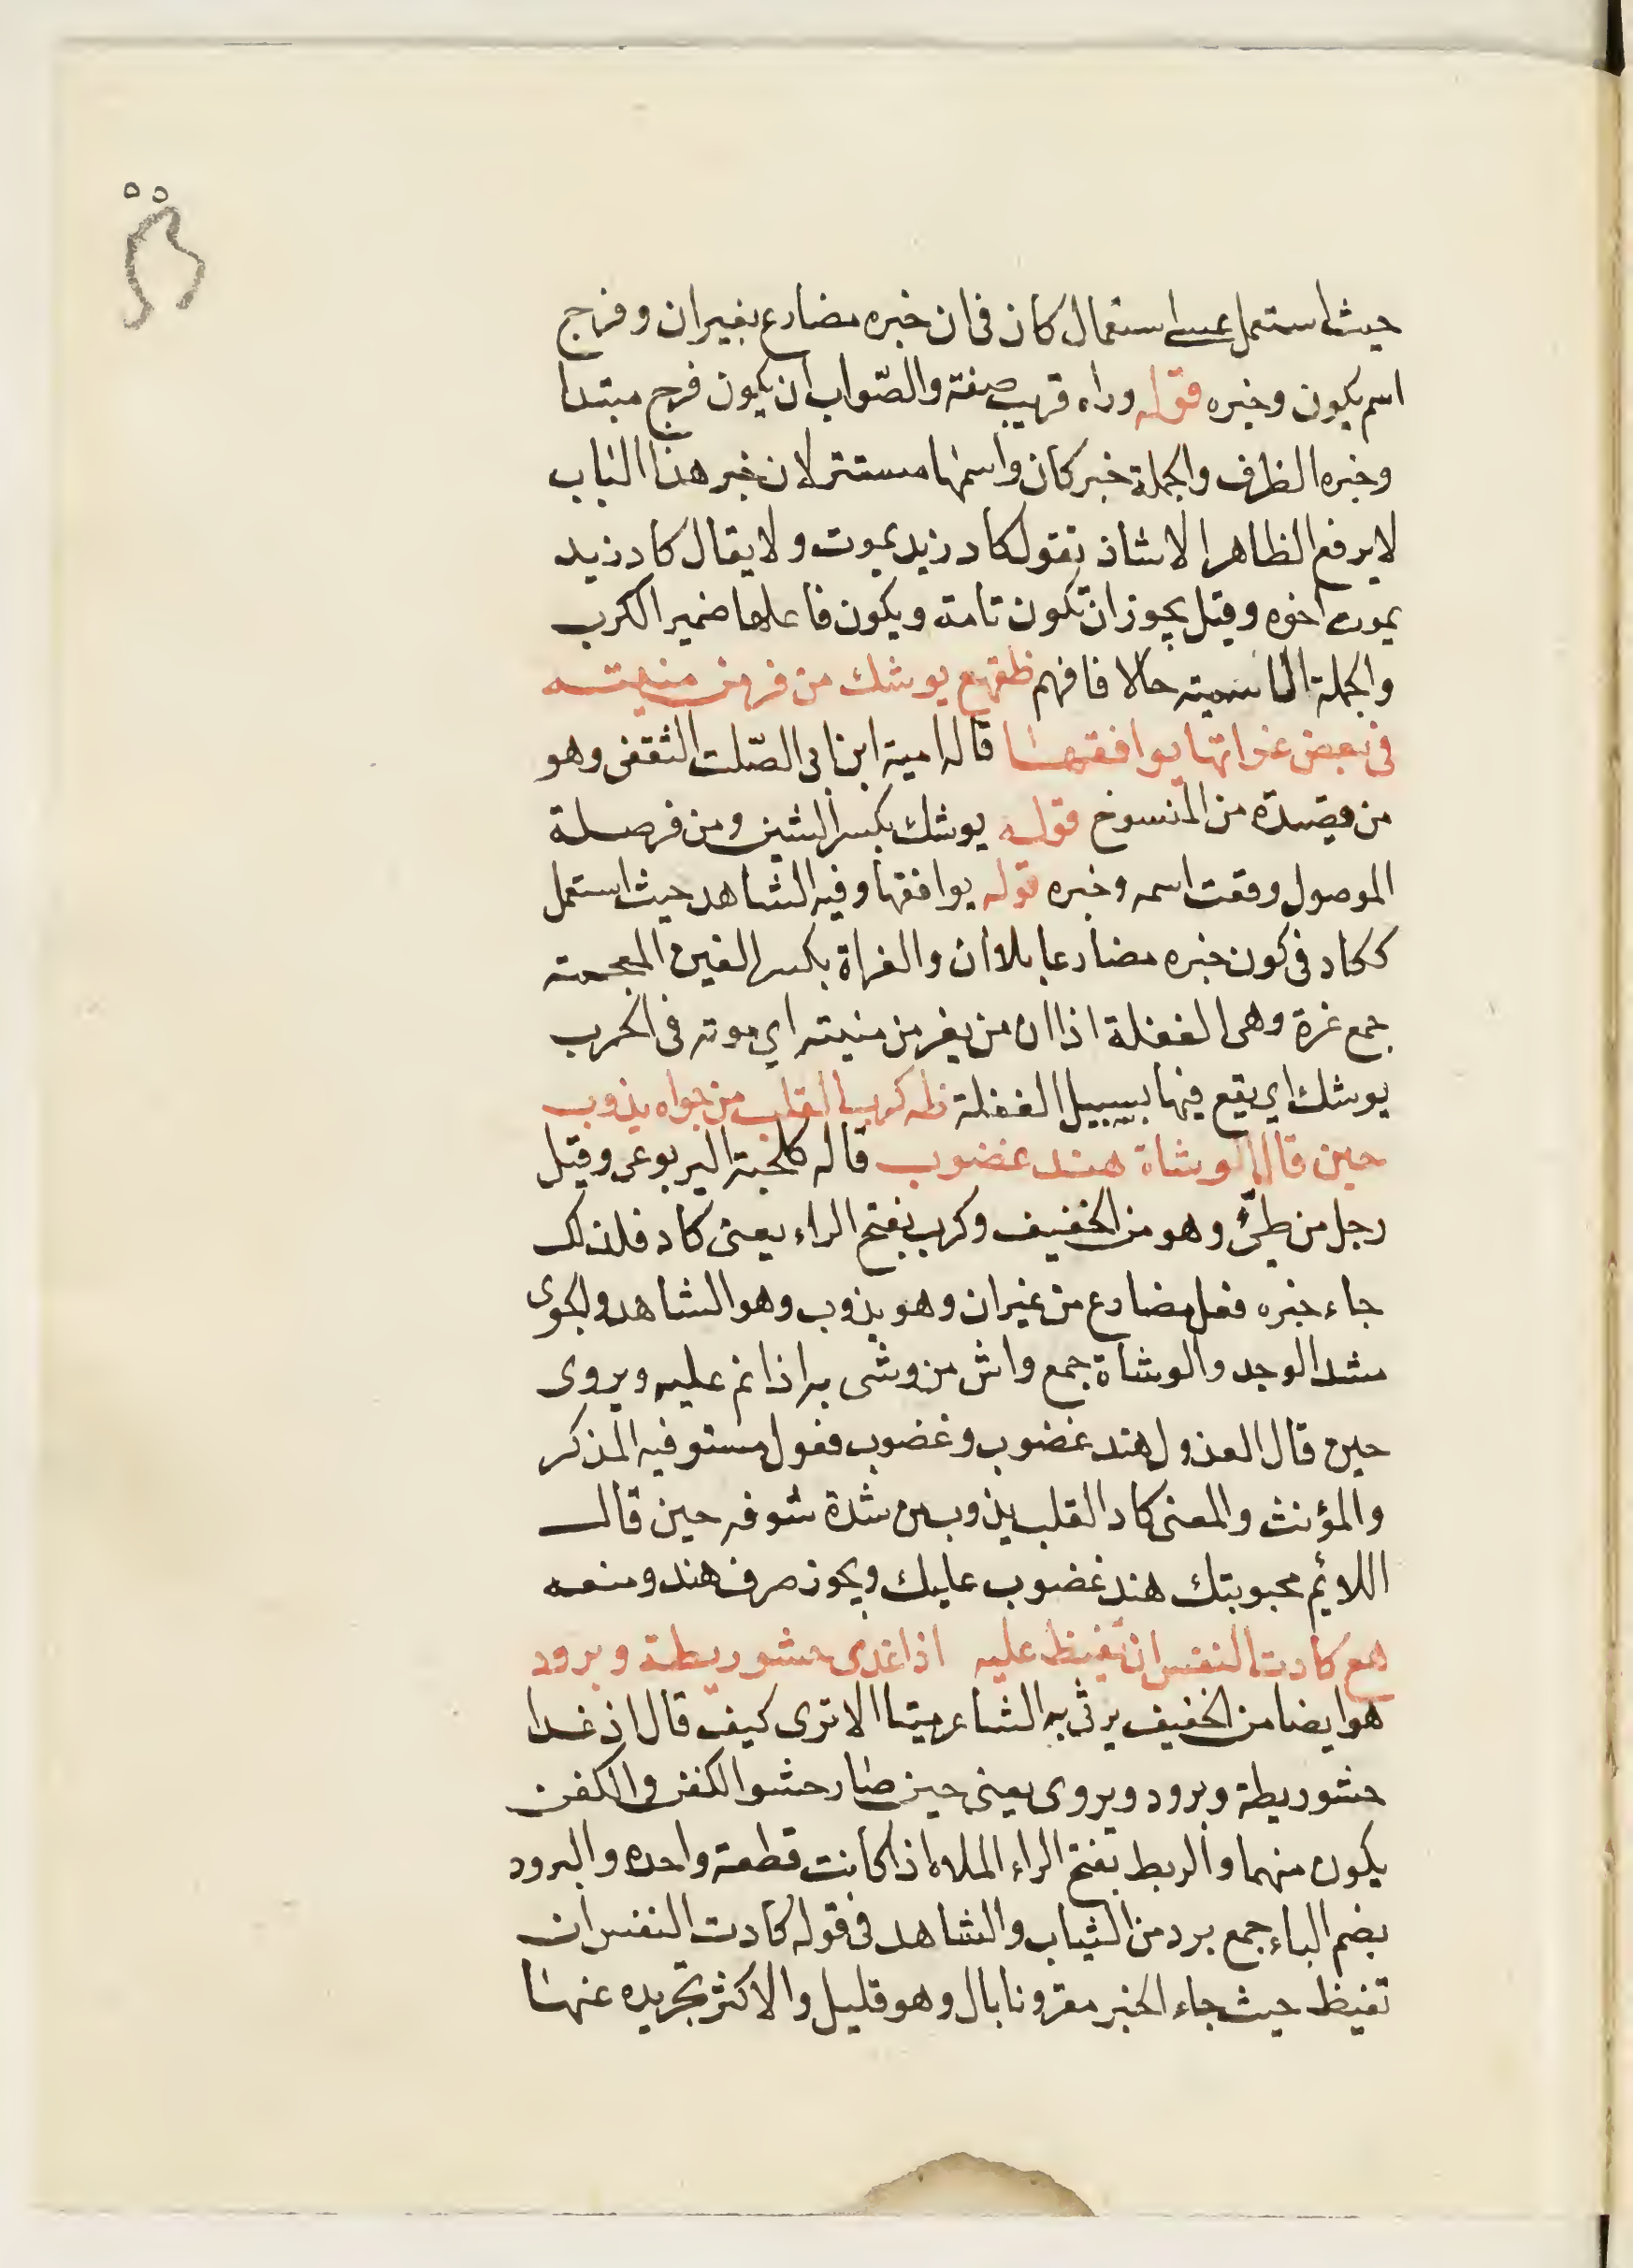 حيث استعمل عسى استعمال كان فى ان خبره مضارع بغير ان وفرج
اسم يكون وخبره قوله وراه قريب صفته والصّواب ان يكون فرج مبتدا
وخبره الظرف والجملة خبر كان واسمها مستتر لان خبر هذا الباب
لا يرفع الظاهر الا شاذ تقول كاد زيد يموت ولا يقال كاد زيد
يموت اخوه وقيل يجوز ان تكون تامة ويكون فاعلها ضمير الكرب
والجملة الاسميته حالا فافهم ظقهع يوشك من فر من منيته
فى بعض غراتها يوافقها قاله امية ابن ابى الصّلت الثقفى وهو
من قصيدة من المنسرح قوله يوشك بكسر الشين ومن فر صلة
الموصول وقعت اسمه وخبره قوله يوافقها وفيه الشاهد حيث استعمل
ككاد فى كون خبره مضارعا بلا ان والغراة بكسر الغين المعجمته
جمع غرة وهى الغفلة اذا ان من يفر من منيته اي موته فى الحرب
يوشك اي يقع فيها بسبيل الغفلة ظه كرب القلب من جواه يذوب
حين قال الوشاة هند غضوب قاله كلحبة اليربوعى وقيل
رجل من طيّئ وهو من الخفيف وكرب بفتح الراء يعنى كاد فلذلك
جاء خبره فعل مضارع من غير ان وهو يذوب وهو الشاهد والجوى
شد الوجد والوشاة جمع واش من وشى به اذا نم عليه ويروى
حين قال العذول هند غضوب وغضوب فعول مستو فيه المذكر
والمؤنث والمعنى كاد القلب يذوب من شدة شوقه حين قال
اللائم محبوبتك هند غضوب عليك ويجوز صرف هند ومنعه
هع كادت النفس ان تفيظ عليه اذا غدى حشو ريطة وبرود
هو ايضا من الخفيف يرثى به الشاعر ميتا الا ترى كيف قال اذ غدا
حشو ريطة وبرود ويروى يعنى حين صار حشو الكفن والكفن
يكون منهما والريط بفتح الراء الملاه اذا كانت قطعة واحده والبرود
بضم الباء جمع برد من الثياب والشاهد فى قوله كادت النفس ان
تفيظ حيث جاء الخبر مقرونا بال وهو قليل والاكثر تجريده عنها